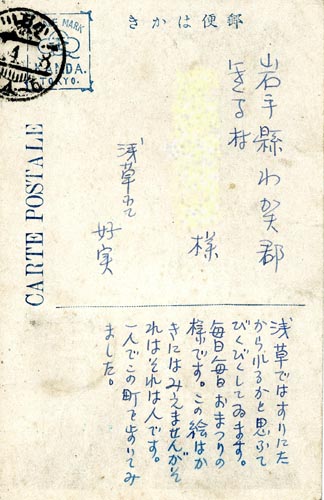 郵便はかき
MARK
KANDA.
TOKYO.
CARTE POSTALE
岩手縣わか郡
様
浅草にて
好実
浅草ではすりにた
かられるかと思ふて
びくびくしてゐます。
毎日毎日おまつりの
様です。この絵はか
きにはみえませんがそ
れはそれは人です。
一人でこの町を歩いてみ
ました。